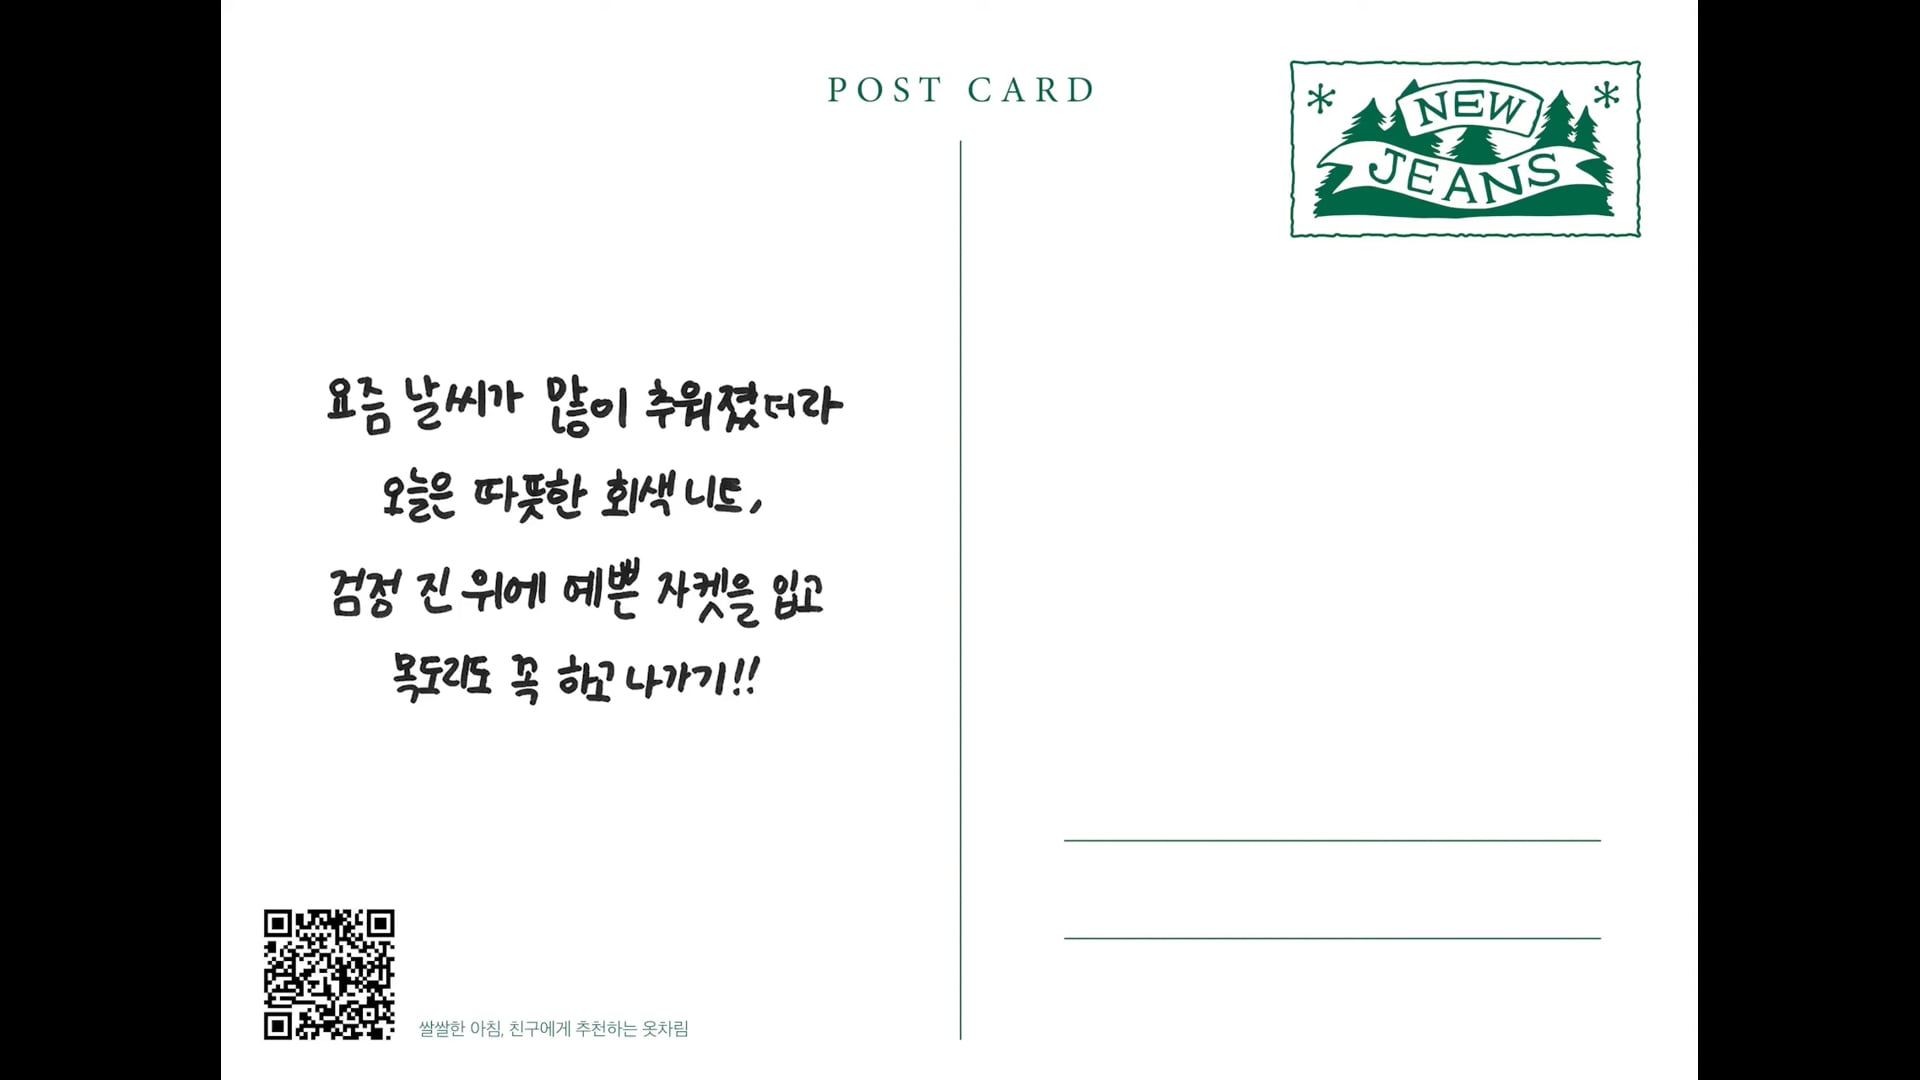 POST CARD
NEW
JEANS
요즘 날씨가 많이 추워졌더라
오늘은 따뜻한 회색 니트,
검정 진 위에 예쁜 자켓을 입고
목도리도 꼭 하고 나가기!!
쌀쌀한 아침, 친구에게 추천하는 옷차림